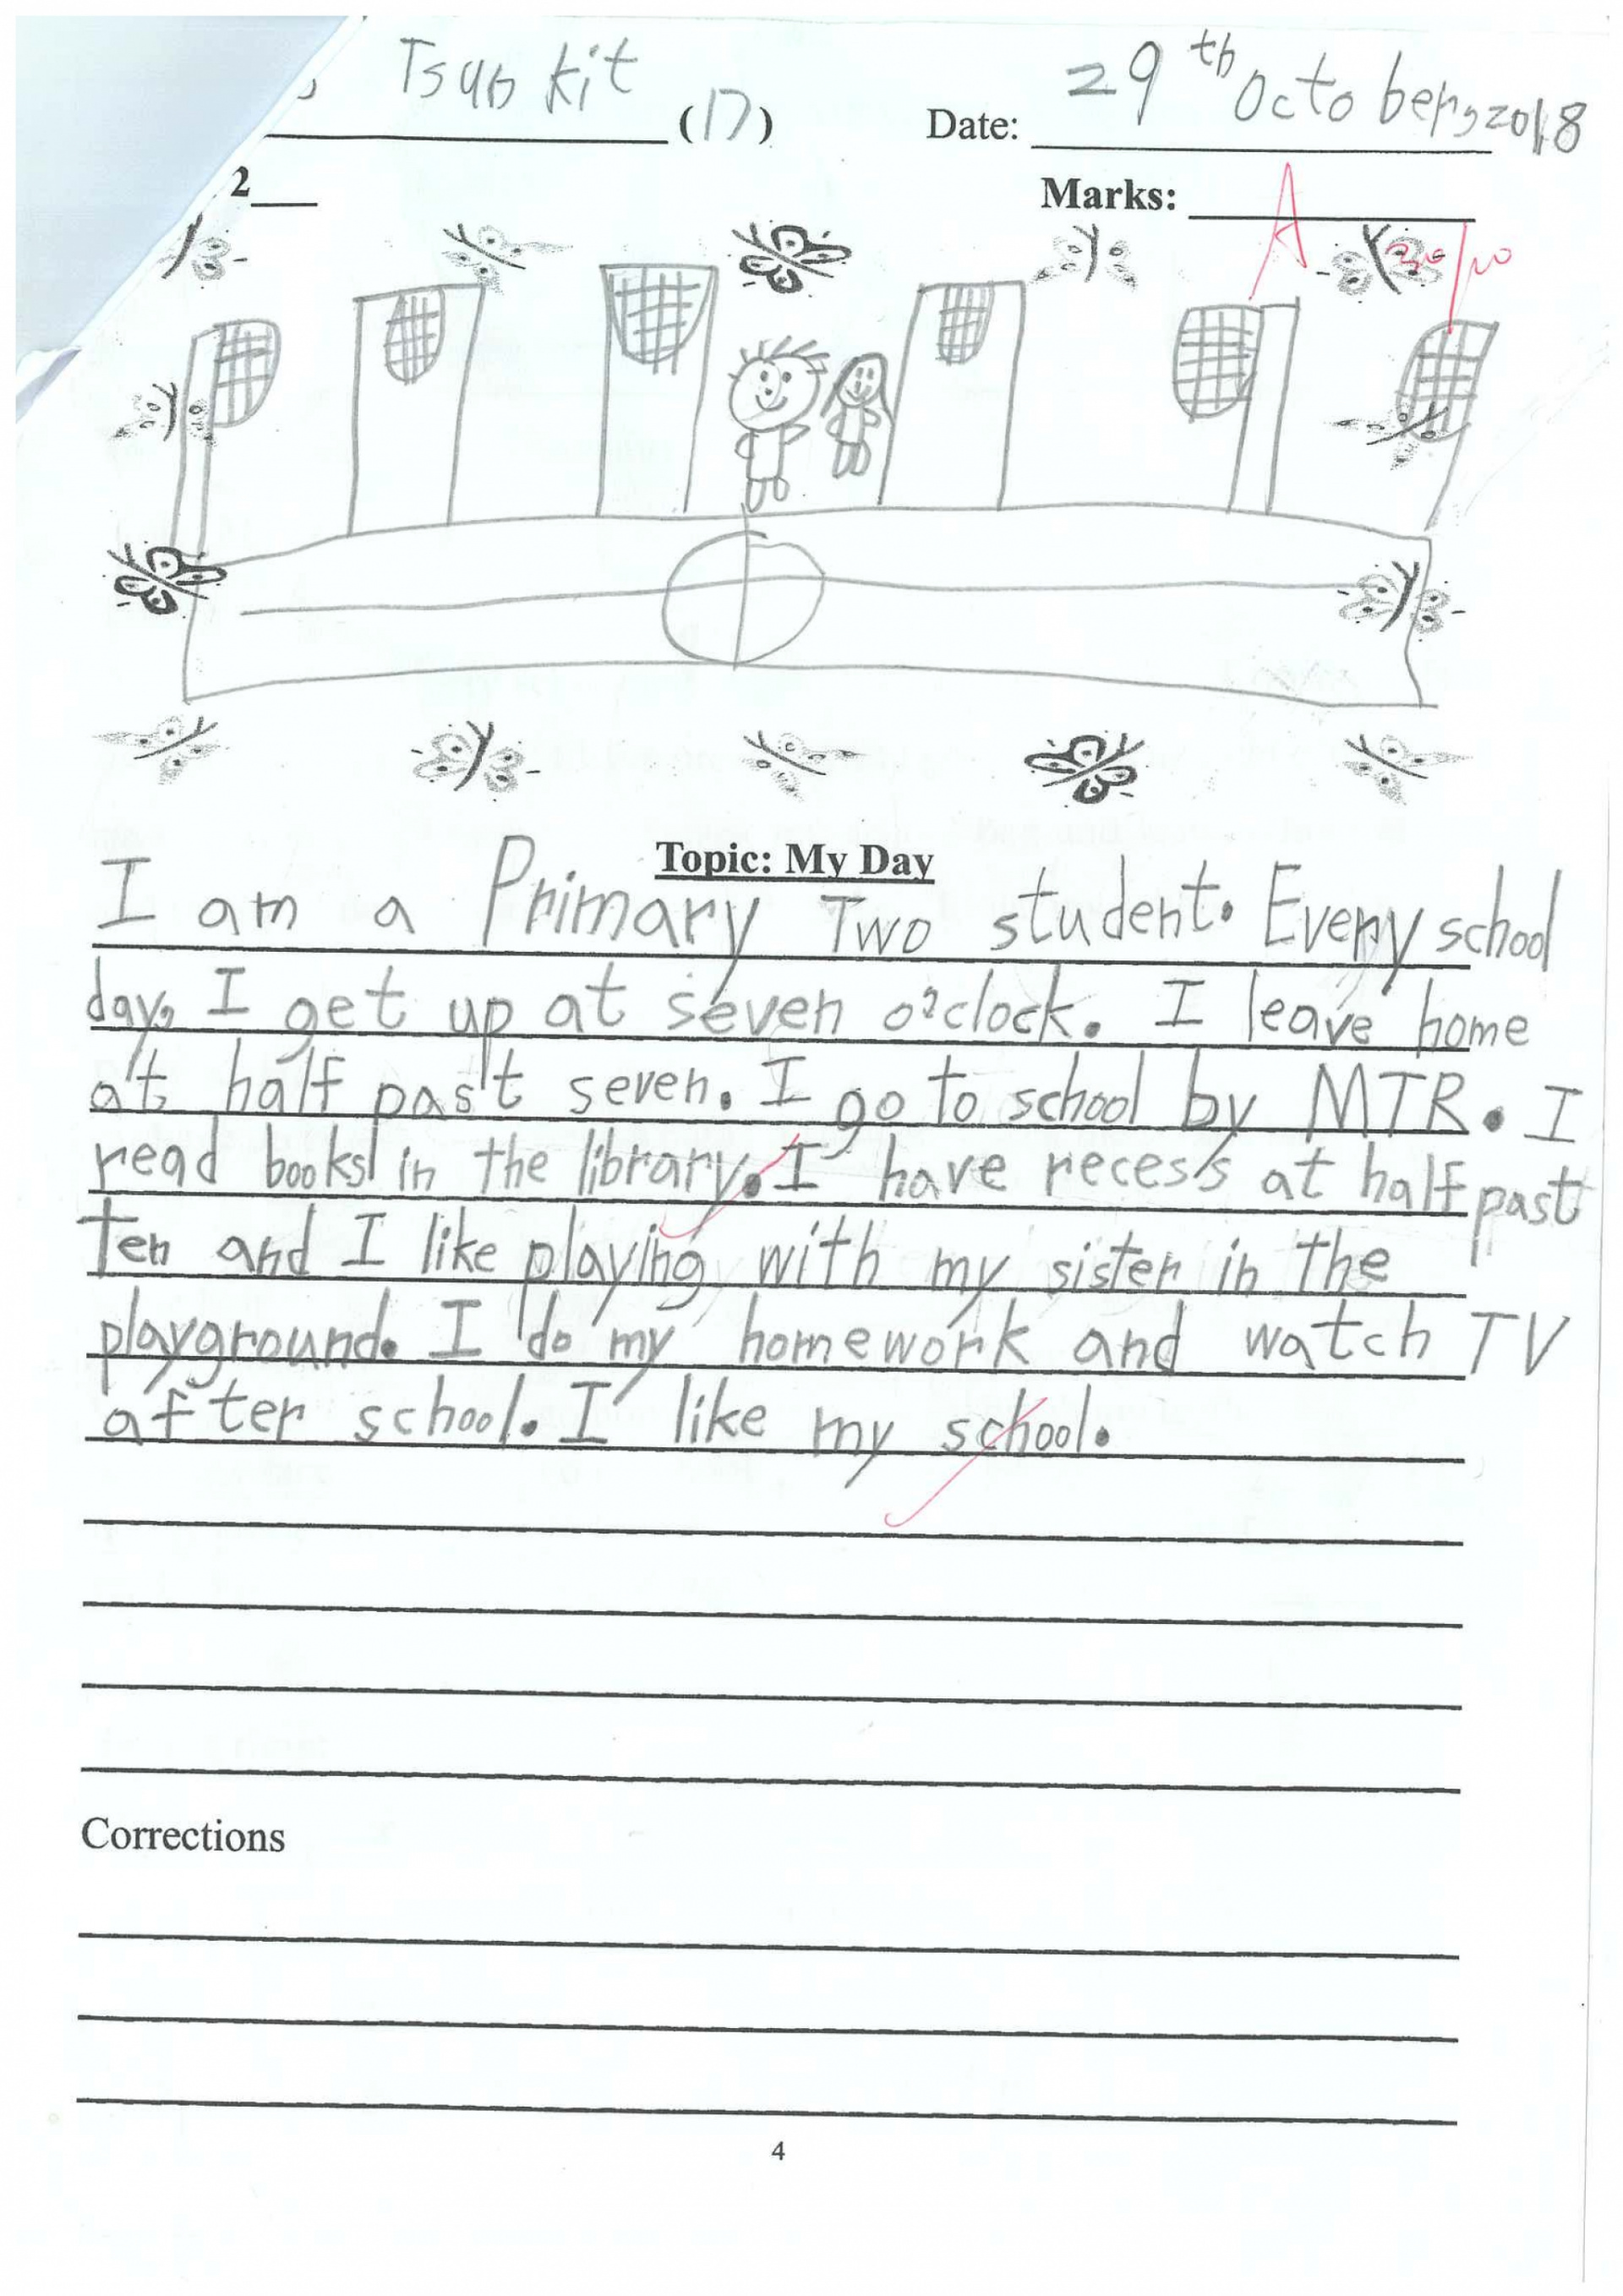 Tsun Kit (17) Date: 29th October, 2018
2 Marks: A
Topic: My Day
I am a Primary Two student. Every school
day, I get up at seven o'clock. I leave home
at half past seven. I go to school by MTR. I
read books in the library. I have recess at half past
ten and I like playing with my sister in the
playground. I do my homework and watch TV
after school. I like my school.
Corrections
4